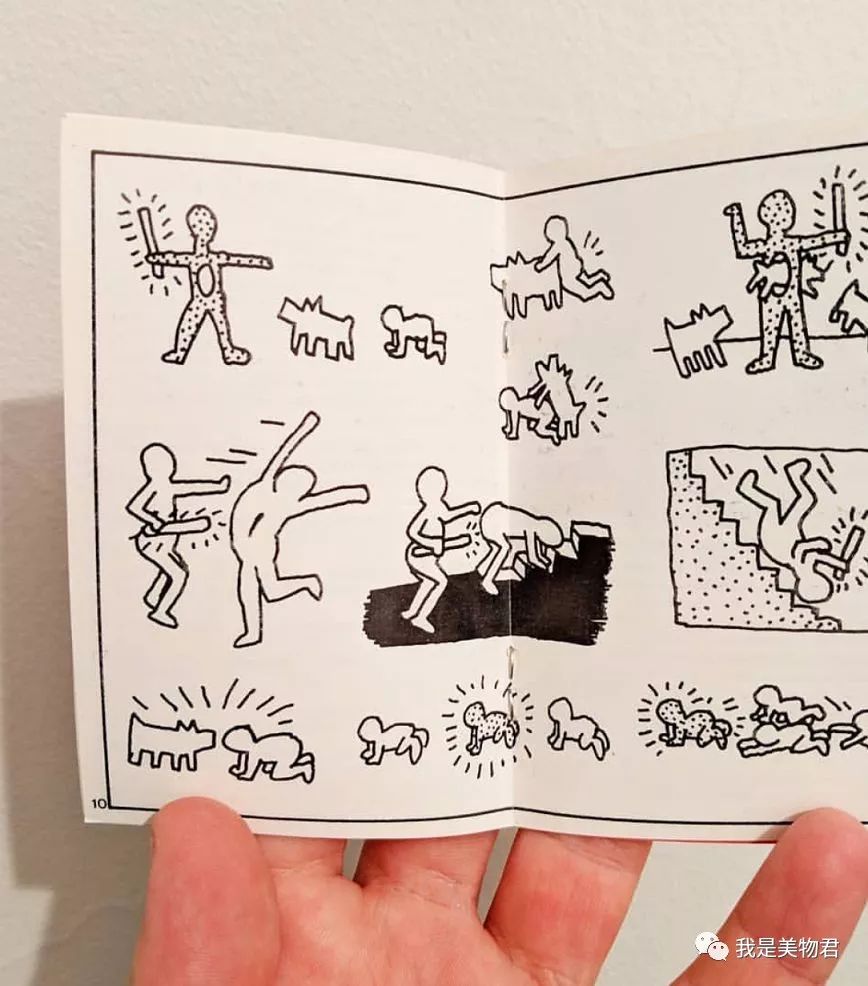 10
我是美物君